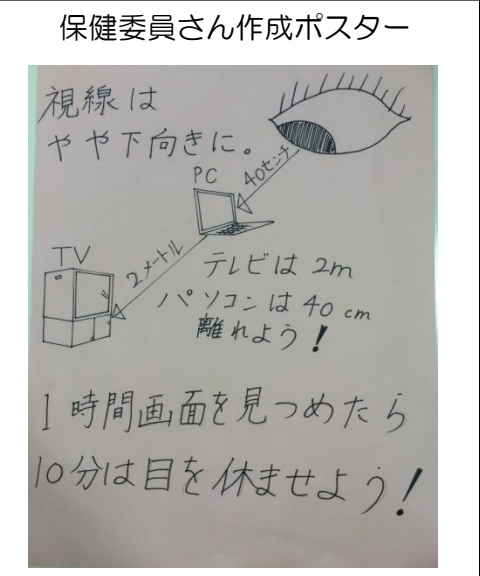 保健委員さん作成ポスター
視線は
やや下向きに。
40センチ
PC
TV
2メートル
テレビは2m
パソコンは40cm
離れよう!
1時間画面を見つめたら
10分は目を休ませよう!